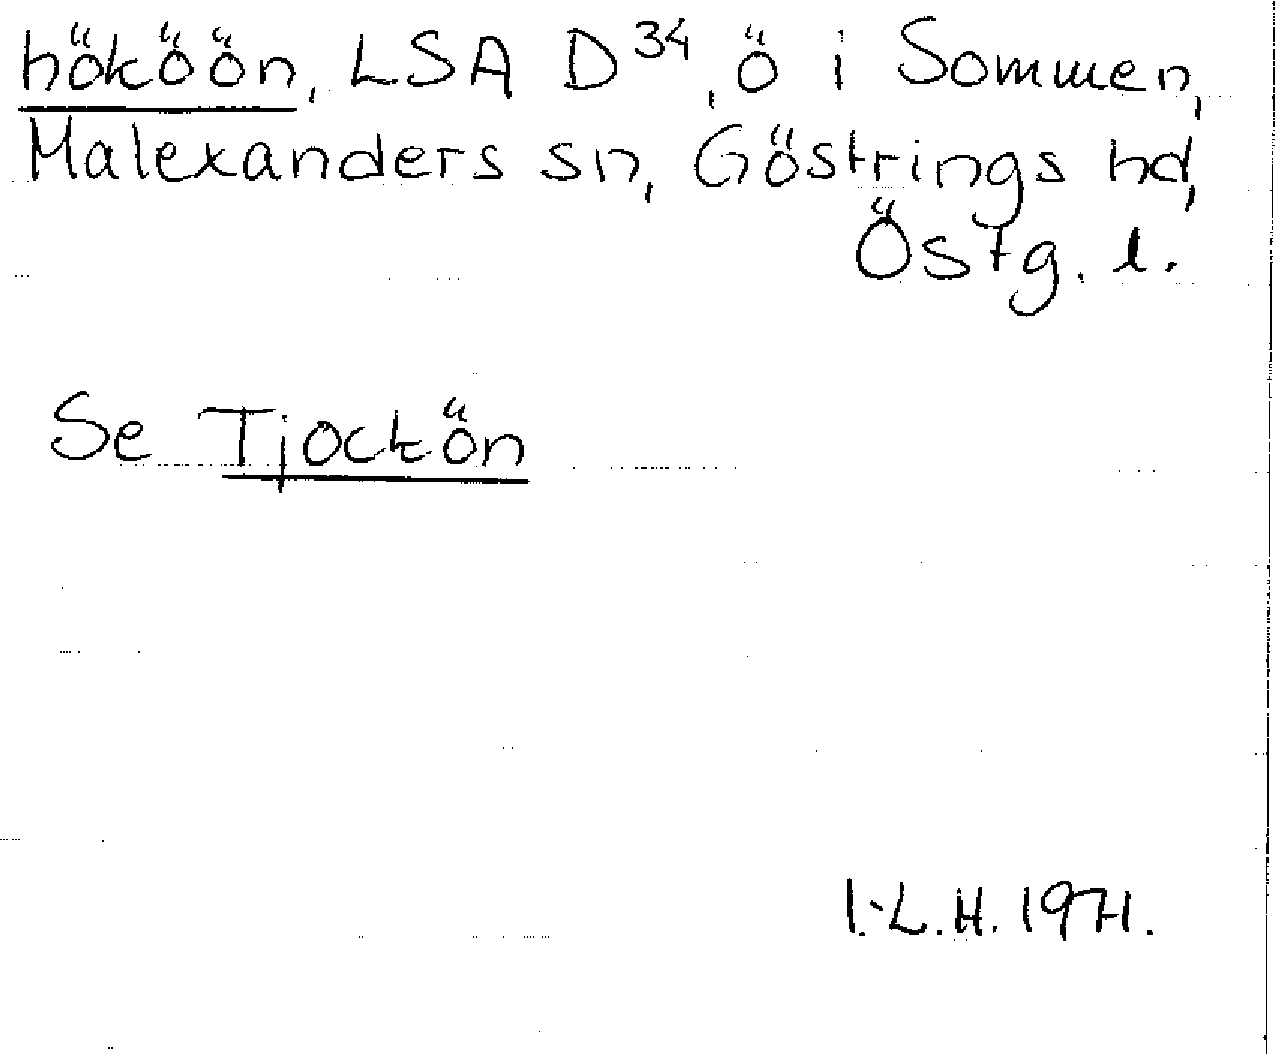 hököön, LSA D³⁴, ö i Sommen,
Malexanders sn, Göstrings hd,
Östg. l.
Se Tjockön
I.-L.H. 1971.